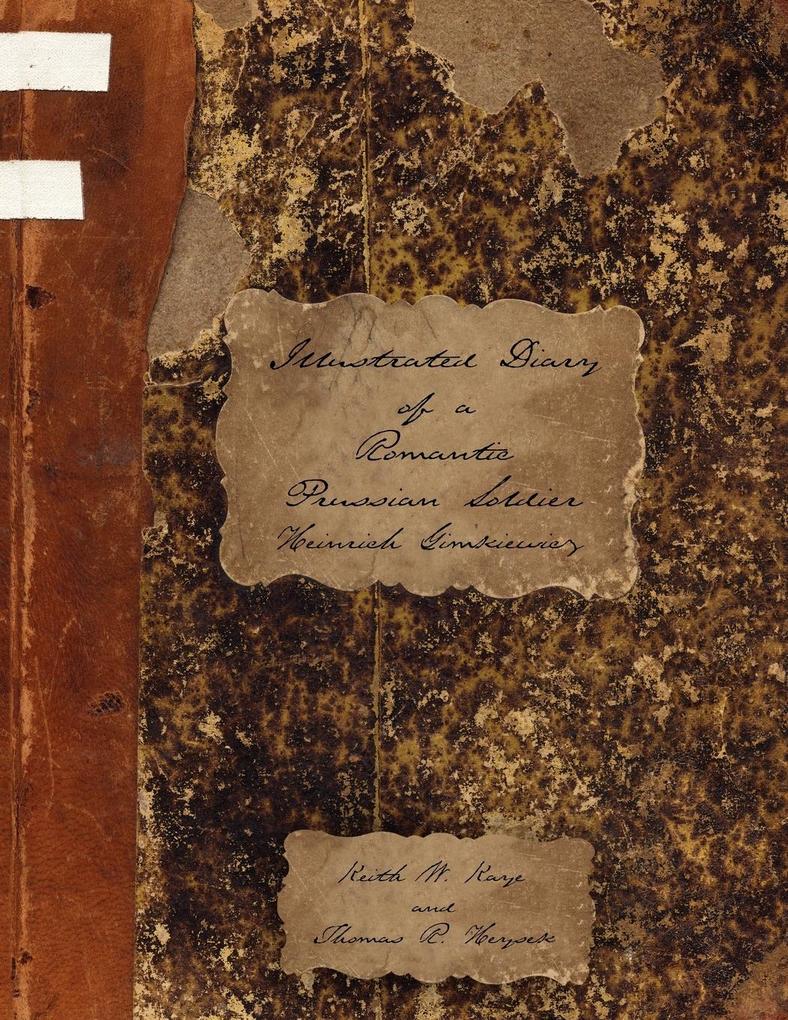 Illustrated Diary
of a
Romantic
Prussian Soldier
Heinrich Gimkiewicz
Keith W. Kaye
and
Thomas R. Heysek